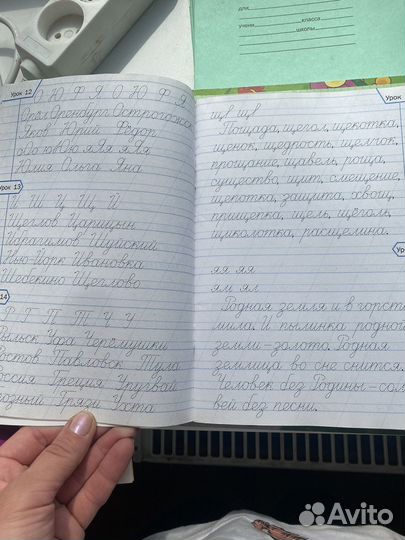 для
учени класса
школы
Урок 12
О Ю Ф Я О Ю Ф Я
Орёл Оренбург Острогожск
Яков Юрий Фёдор
оОо юЮю яЯя яЯя
Юлия Ольга Яна
Урок 13
И Ш Ц Щ Й
Щеглов Царицын
Ибрагимов Шуйский
Нью-Йорк Ивановка
Шебекино Щеглово
14
Р Г П Т Ч У
Рыльск Уфа Черёмушки
Ростов Павловск Тула
Россия Греция Уругвай
Грозный Грязи Ухта
Урок
щв щв
Пощада, щегол, щекотка,
щенок, щедрость, щелчок,
прощание, щавель, роща,
существо, щит, смещение,
щепотка, защита, хвощ,
прищепка, щель, щёголь,
щиколотка, расщелина.
Уро
яя яя
ям ял
Родная земля и в горсти
мила. И пылинка родной
земли - золото. Родная
землица во сне снится.
Человек без Родины - соло
вей без песни.
Avito